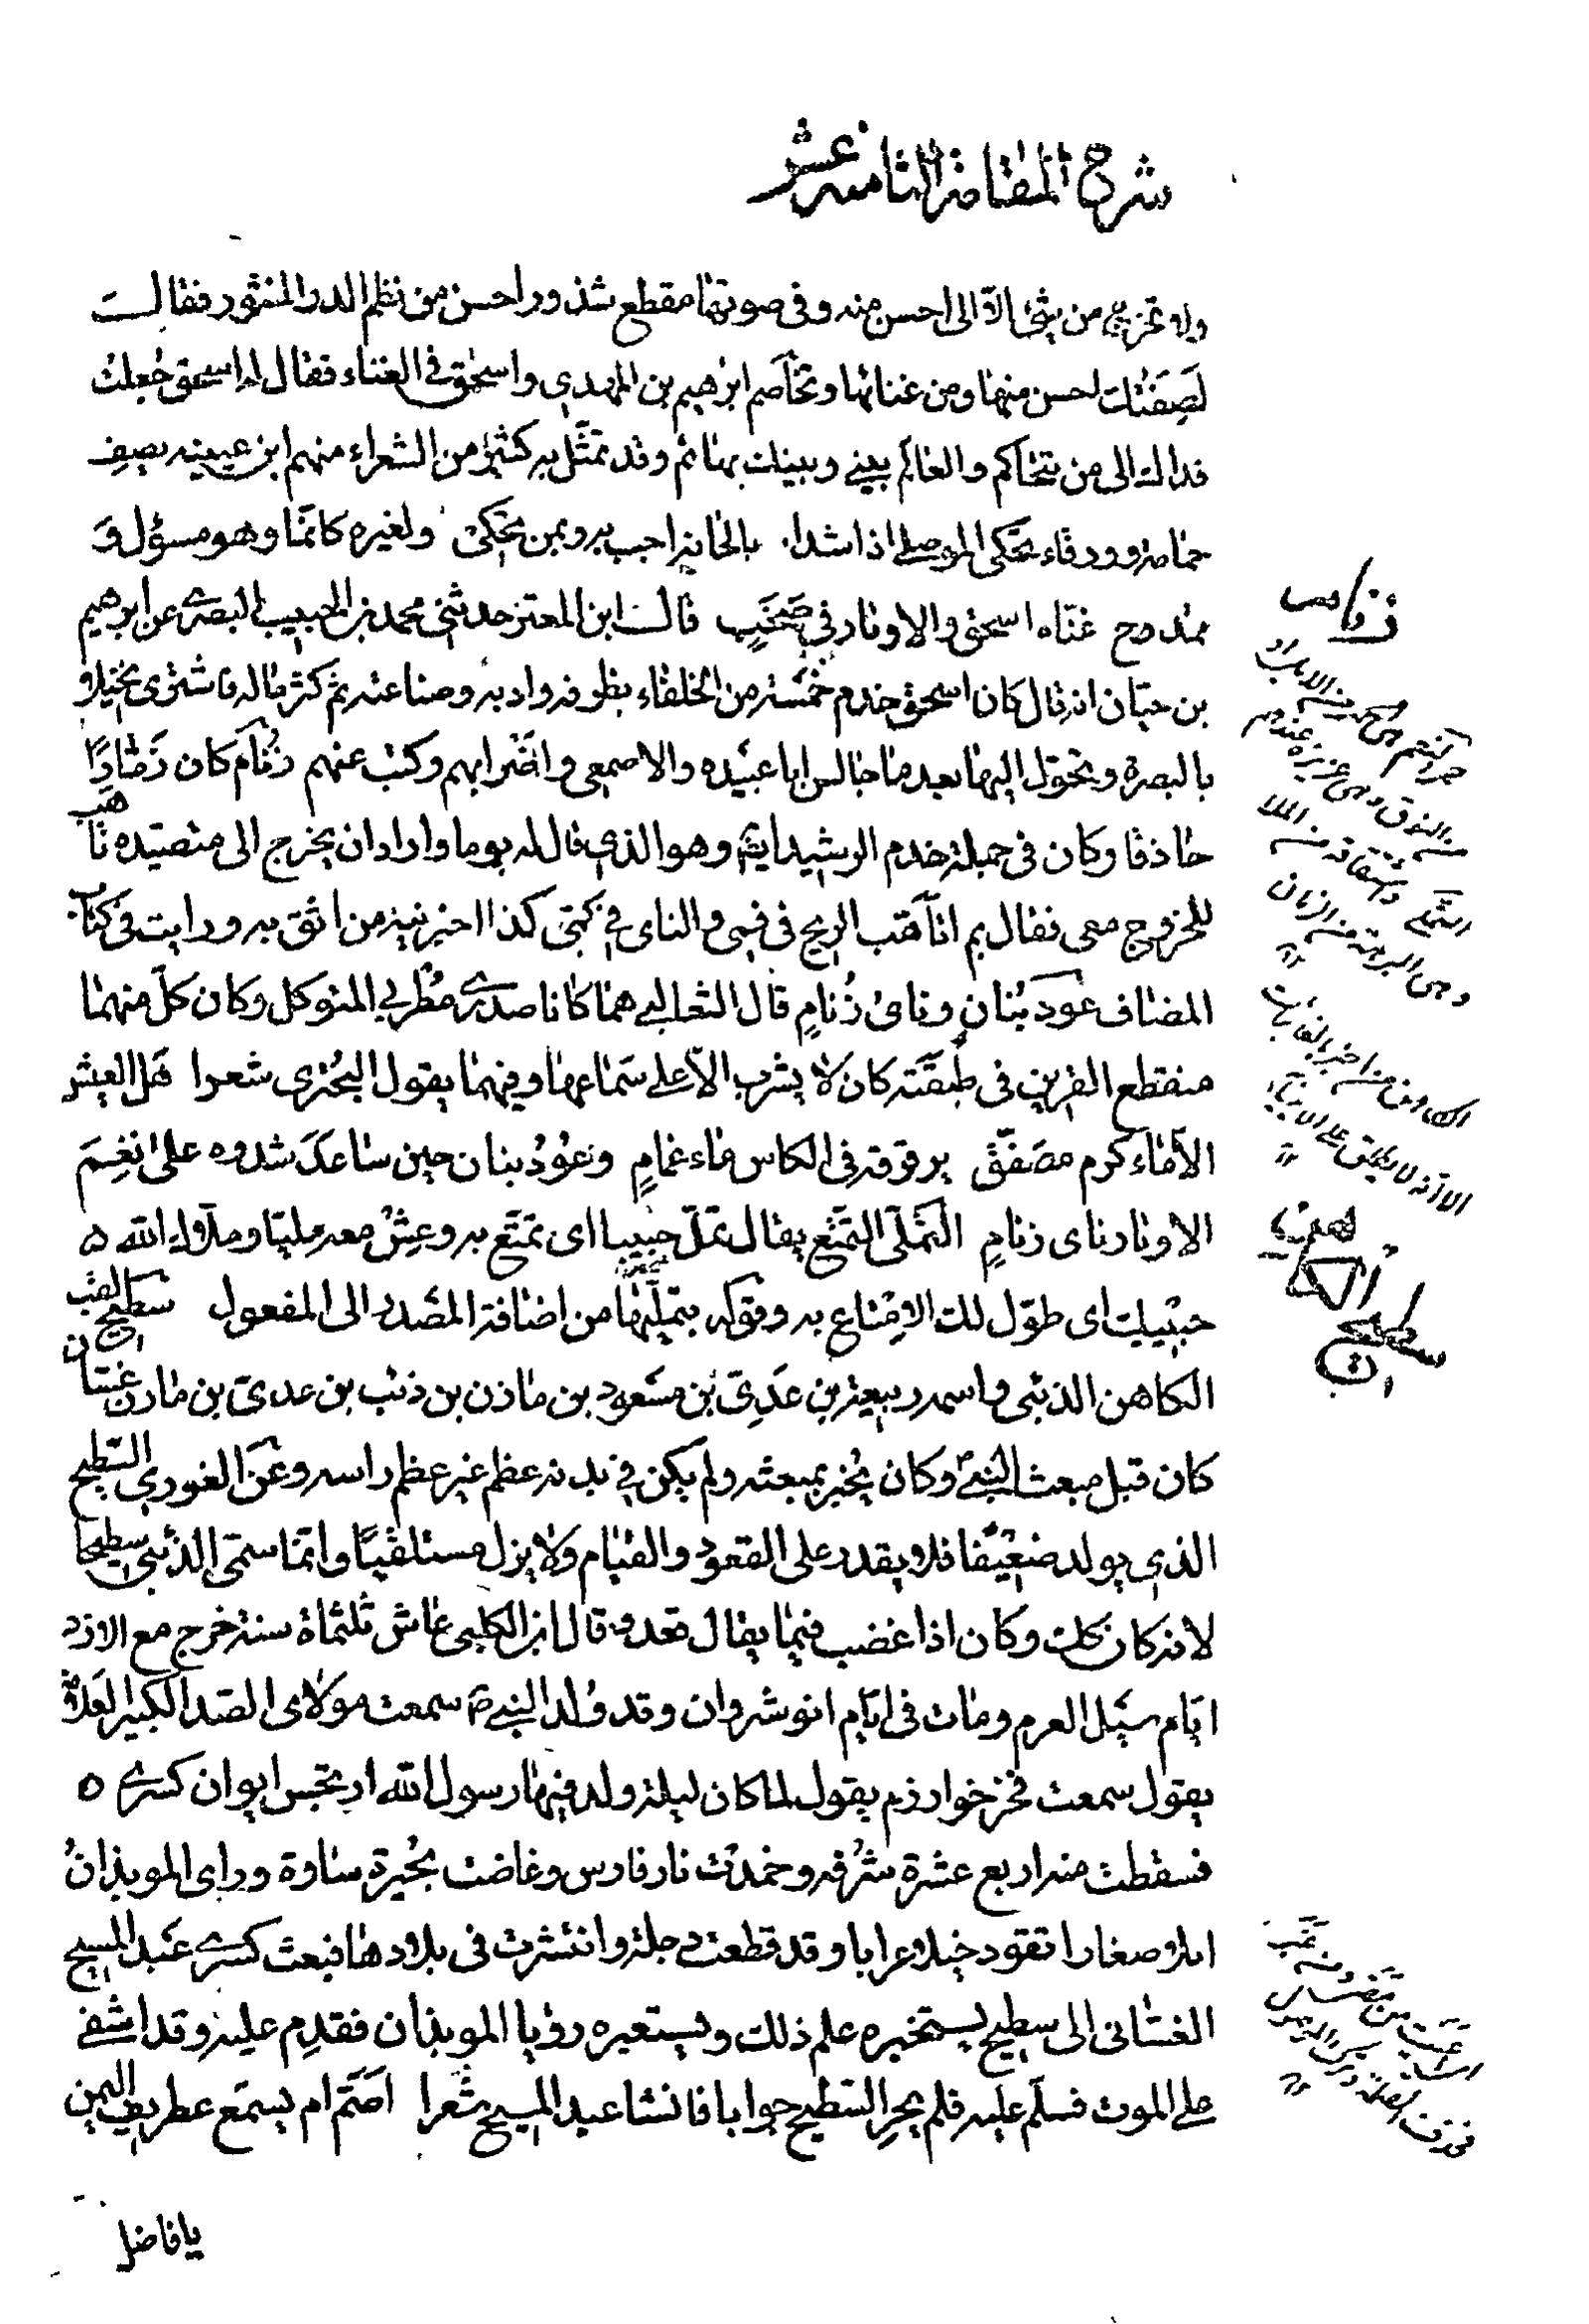 شرح المقامة الثامنة عشر
ولا تخرج من شئ الا الى احسن منه وفى صوتها مقطع شذور احسن من نظم الدر المنثور فقالت
لصفتك احسن منها ومن غنائها وتخاصم ابرهيم بن المهدي واسحق في الغناء فقال له اسحق جعلت
فداك الى من نتحاكم والعالم بيني وبينك بهائم وقد تمثّل به كثير من الشعراء منهم ابن عيينه يصف
حمامة وورقاء تحكى الموصلى اذا شدا بالحانه احبب به وبمن تحكى ولغيره كانما وهو مسؤل و
ممدوح غنّاه اسحق والاوتار في صخب قالـ ابن المعتز حدثنى محمد بن الحبيب البصرى عن ابرهيم
بن حبّان انه قال كان اسحق خدم خمسة من الخلفاء بظرفه وادبه وصناعته ثم كثر ماله فاشترى نخيلا
بالبصرة وتحوّل اليها بعد ما جالس ابا عبيده والاصمعى واضرابهم وكتب عنهم زُنام كان زَمّارًا
حاذقا وكان فى جملة خدم الرشيد ايضا وهو الذى قال له يوما واراد ان يخرج الى متصيّده تأهب
للخروج معى فقال بم اتأهّب الريح فى فمى والناى فى كمّى كذا اخبرنيه من اثق به ورايت فى كتاب
المضاف عود بُنان وناى زُنام قال الثعالبى هما كانا صدرى مُطربى المتوكل وكان كلّ منهما
منقطع القرين فى طبقته كان لا يشرب الا على سماعها وفيهما يقول البحترى شعرا هل العيش
الا ماء كرم مصفّق يرقرقه فى الكاس ماء غمام وعُودُ بنان حين ساعد شدوه على نغم
الاوتار ناى زنام التملّى التمتّع يقال تملّ حبيبا اى تمتّع به وعِشْ معه مليّا وملّاك الله
حبيبك اى طوّل لك الامتاع به وقوله بتملّيها من اضافة المصدر الى المفعول سطيح لقب
الكاهن الذئبى واسمه ربيعة بن عدىّ بن مسعود بن مازن بن ذئب بن عدىّ بن مازن غسّان
كان قبل مبعث النبى وكان يُخبر بمبعثه ولم يكن فى بدنه عظم غير عظم راسه وعن الغورى السّطيح
الذى يولد ضعيفا فلا يقدر على القعود والقيام ولا يزل مستلقيًا وانما سمّى الذئبى سطيحا
لانه كان كذلك وكان اذا غضب فيما يقال قعد قال ابن الكلبى عاش ثلثماة سنة خرج مع الازد
ايّام سيل العرم ومات فى ايّام انوشروان وقد وُلد النبى سمعت مولاى الصّدر الكبير العلامة
يقول سمعت فخر خوارزم يقول لما كان ليلة ولد فيها رسول الله ارتجس ايوان كسرى
فسقطت منه اربع عشرة شُرفه وخمدت نار فارس وغاضت بُحيرة ساوة وراى الموبذان
ابلا صغارا تقود خيلا عرابا وقد قطعت دجلة وانتشرت فى بلادها فبعث كسرى عبد المسيح
الغسّانى الى سطيح يستخبره علم ذلك ويستعبره رؤيا الموبذان فقدم عليه وقد اشفى
على الموت فسلّم عليه فلم يحر السّطيح جوابا فانشا عبد المسيح شعرا اصمّ ام يسمع عطريف اليمن
زنام
لقب
سطيح
يا فاضل